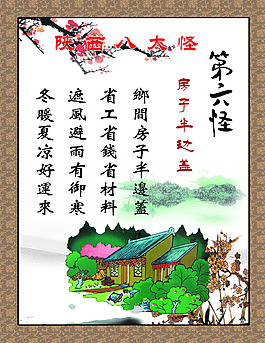 陕西八大怪
第六怪
房子半边盖
鄉間房子半邊蓋
省工省錢省材料
遮風避雨有御寒
冬暖夏凉好運來